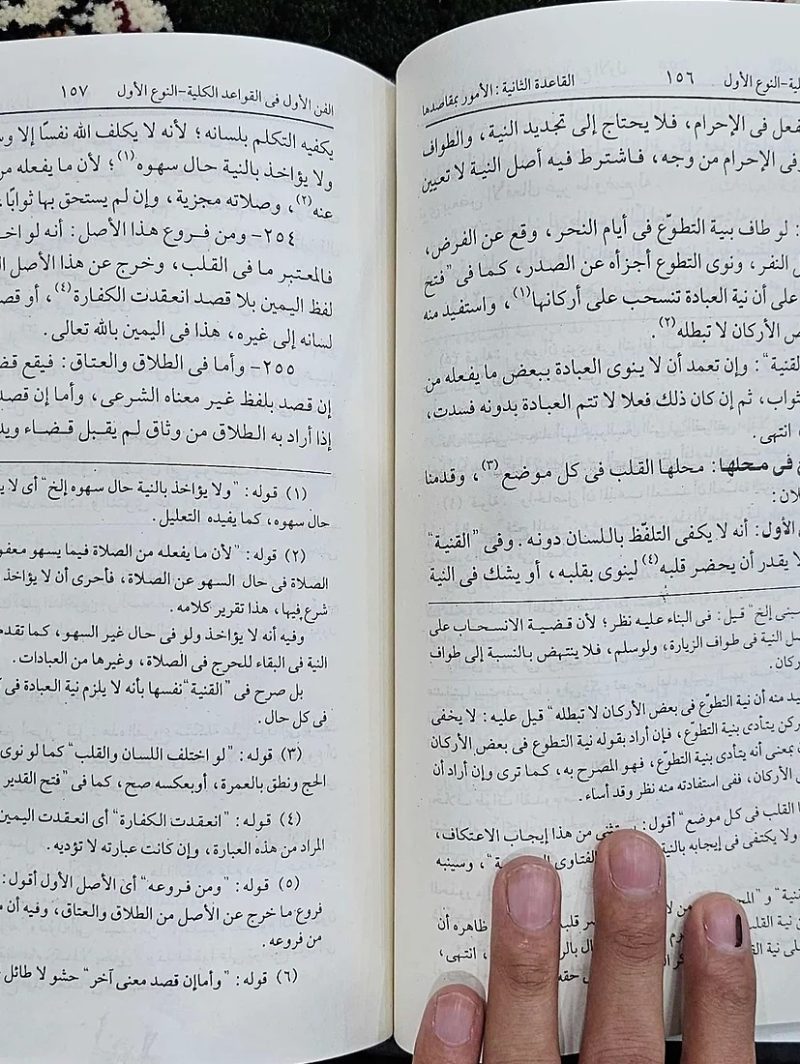 ية-النوع الأول ١٥٦ القاعدة الثانية : الأمور بمقاصدها
فعل فى الإحرام، فلا يحتاج إلى تجديد النية، والطواف
فى الإحرام من وجه، فاشترط فيه أصل النية لا تعيين
: لو طاف بنية التطوّع فى أيام النحر، وقع عن الفرض،
النفر، ونوى التطوع أجزأه عن الصدر، كما فى "فتح
على أن نية العبادة تنسحب على أركانها(١)، واستفيد منه
ض الأركان لا تبطله(٢).
القنية" : وإن تعمد أن لا ينوى العبادة ببعض ما يفعله من
ثواب، ثم إن كان ذلك فعلا لا تتم العبادة بدونه فسدت،
انتهى.
فى محلها : محلها القلب فى كل موضع(٣)، وقدمنا
لان:
الأول: أنه لا يكفى التلفّظ باللسان دونه. وفى "القنية"
لا يقدر أن يحضر قلبه(٤) لينوى بقلبه، أو يشك فى النية
إلخ" قيل : فى البناء عليه نظر؛ لأن قضية الانسحاب على
صل النية فى طواف الزيارة، ولو سلم، فلا ينتهض بالنسبة إلى طواف
ركان.
يد منه أن نية التطوّع فى بعض الأركان لا تبطله" قيل عليه : لا يخفى
ركن يتأدى بنية التطوّع، فإن أراد بقوله نية التطوع فى بعض الأركان
بمعنى أنه يتأدى بنية التطوّع، فهو المصرح به، كما ترى وإن أراد أن
الأركان، ففى استفادته منه نظر وقد أساء.
القلب فى كل موضع" أقول: من هذا إيجاب الاعتكاف،
ولا يكتفى فى إيجابه الفتاوى وسينبه
نية" و من
ن نية القلب قلبه ظاهره أن
على نية انتهى،
حقه
الفن الأول فى القواعد الكلية-النوع الأول ١٥٧
يكفيه التكلم بلسانه؛ لأنه لا يكلف الله نفسًا إلا وس
ولا يؤاخذ بالنية حال سهوه(١)؛ لأن ما يفعله من
عنه(٢)، وصلاته مجزية، وإن لم يستحق بها ثوابًا،
٢٥٤- ومن فروع هذا الأصل: أنه لو اخ
فالمعتبر ما فى القلب، وخرج عن هذا الأصل ال
لفظ اليمين بلا قصد انعقدت الكفارة(٤)، أو قص
لسانه إلى غيره، هذا فى اليمين بالله تعالى.
٢٥٥- وأما فى الطلاق والعتاق: فيقع قض
إن قصد بلفظ غير معناه الشرعى، وأما إن قصد
إذا أراد به الطلاق من وثاق لم يقبل قضاء ويد
(١) قوله : "ولا يؤاخذ بالنية حال سهوه إلخ" أى لا ي
حال سهوه، كما يفيده التعليل.
(٢) قوله : "لأن ما يفعله من الصلاة فيما يسهو معفو
الصلاة فى حال السهو عن الصلاة، فأحرى أن لا يؤاخذ
شرع فيها، هذا تقرير كلامه.
وفيه أنه لا يؤاخذ ولو فى حال غير السهو، كما تقدم
النية فى البقاء للحرج فى الصلاة، وغيرها من العبادات.
بل صرح فى "القنية" نفسها بأنه لا يلزم نية العبادة فى
فى كل حال.
(٣) قوله : "لو اختلف اللسان والقلب" كما لو نوى
الحج ونطق بالعمرة، أو بعكسه صح، كما فى "فتح القدير
(٤) قوله : "انعقدت الكفارة" أى انعقدت اليمين
المراد من هذه العبارة، وإن كانت عبارته لا تؤديه.
(٥) قوله : "ومن فروعه" أى الأصل الأول أقول:
فروع ما خرج عن الأصل من الطلاق والعتاق، وفيه أن م
من فروعه.
(٦) قوله : "وأما إن قصد معنى آخر" حشو لا طائل